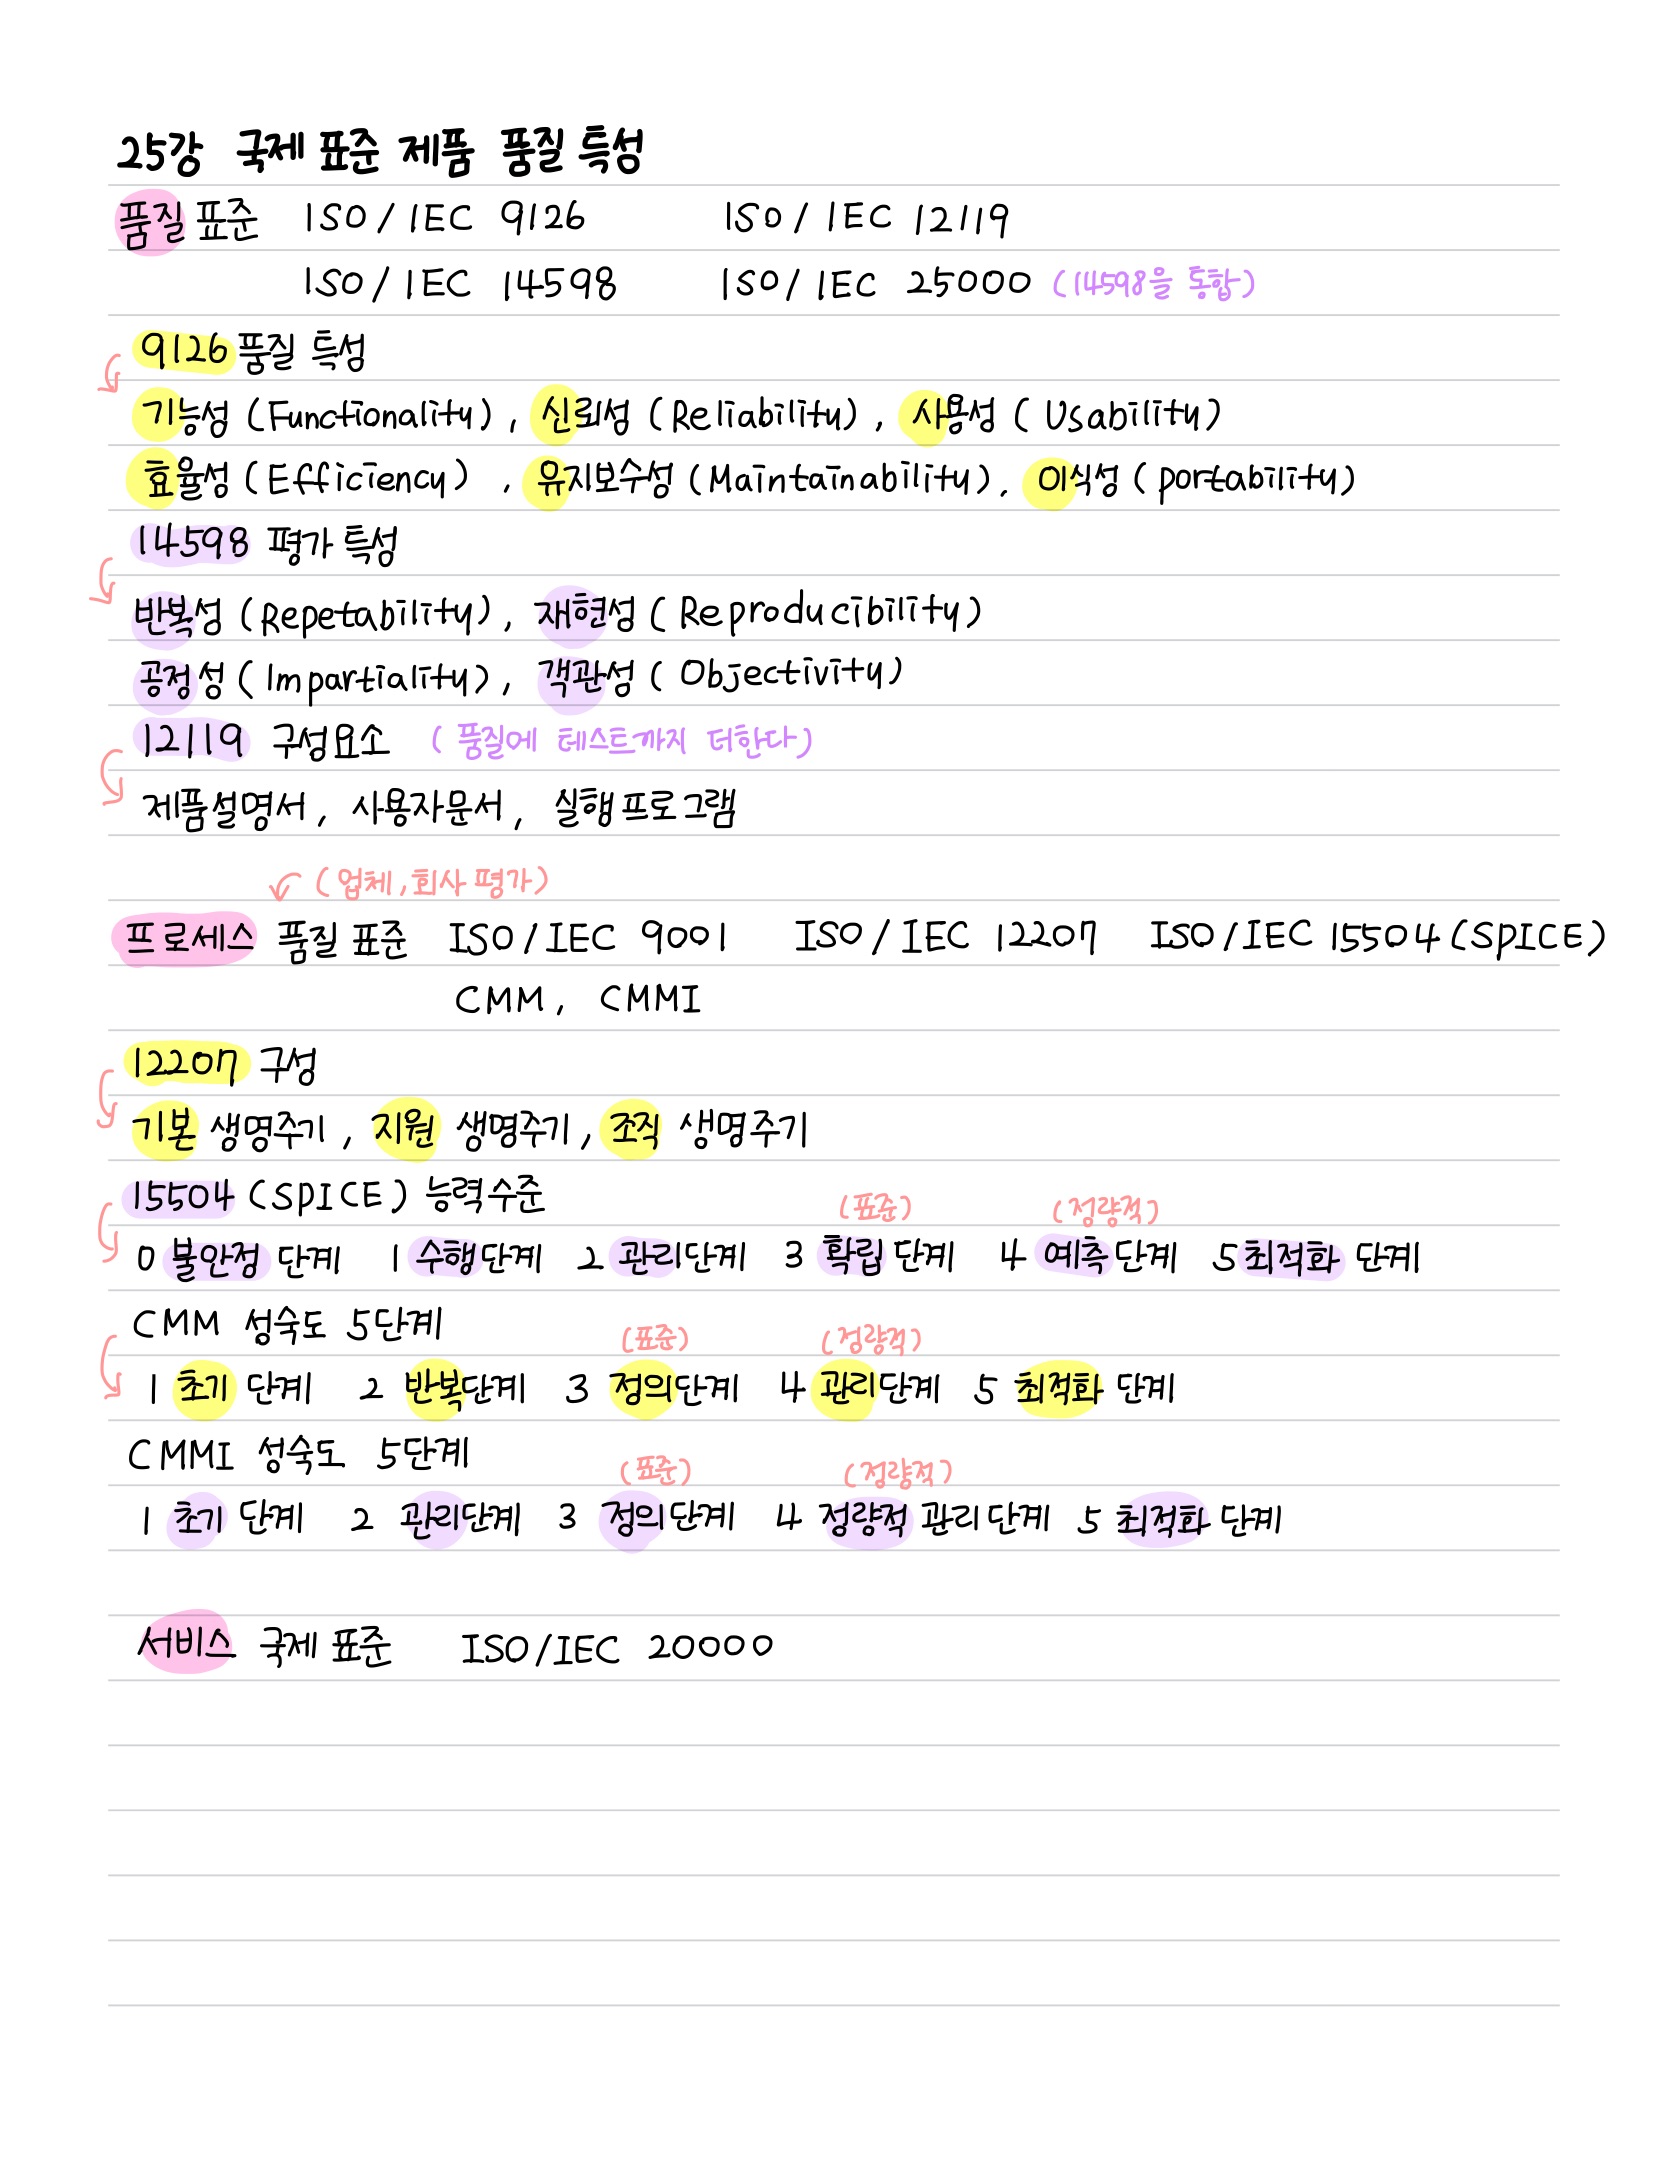 25강 국제 표준 제품 품질 특성
품질 표준 ISO / IEC 9126 ISO / IEC 12119
ISO / IEC 14598 ISO / IEC 25000 (14598을 통합)
9126 품질 특성
기능성 (Functionality), 신뢰성 (Reliability), 사용성 (Usability)
효율성 (Efficiency), 유지보수성 (Maintainability), 이식성 (portability)
14598 평가 특성
반복성 (Repetability), 재현성 (Reproducibility)
공정성 (Impartiality), 객관성 (Objectivity)
12119 구성요소 (품질에 테스트까지 더한다)
제품설명서, 사용자문서, 실행프로그램
(업체, 회사 평가)
프로세스 품질 표준 ISO/IEC 9001 ISO/IEC 12207 ISO/IEC 15504 (SPICE)
CMM, CMMI
12207 구성
기본 생명주기, 지원 생명주기, 조직 생명주기
15504 (SPICE) 능력수준
(표준) (정량적)
0 불안정 단계 1 수행단계 2 관리단계 3 확립 단계 4 예측단계 5 최적화 단계
CMM 성숙도 5단계
(표준) (정량적)
1 초기 단계 2 반복단계 3 정의단계 4 관리단계 5 최적화 단계
CMMI 성숙도 5단계
(표준) (정량적)
1 초기 단계 2 관리단계 3 정의단계 4 정량적 관리단계 5 최적화 단계
서비스 국제 표준 ISO/IEC 20000